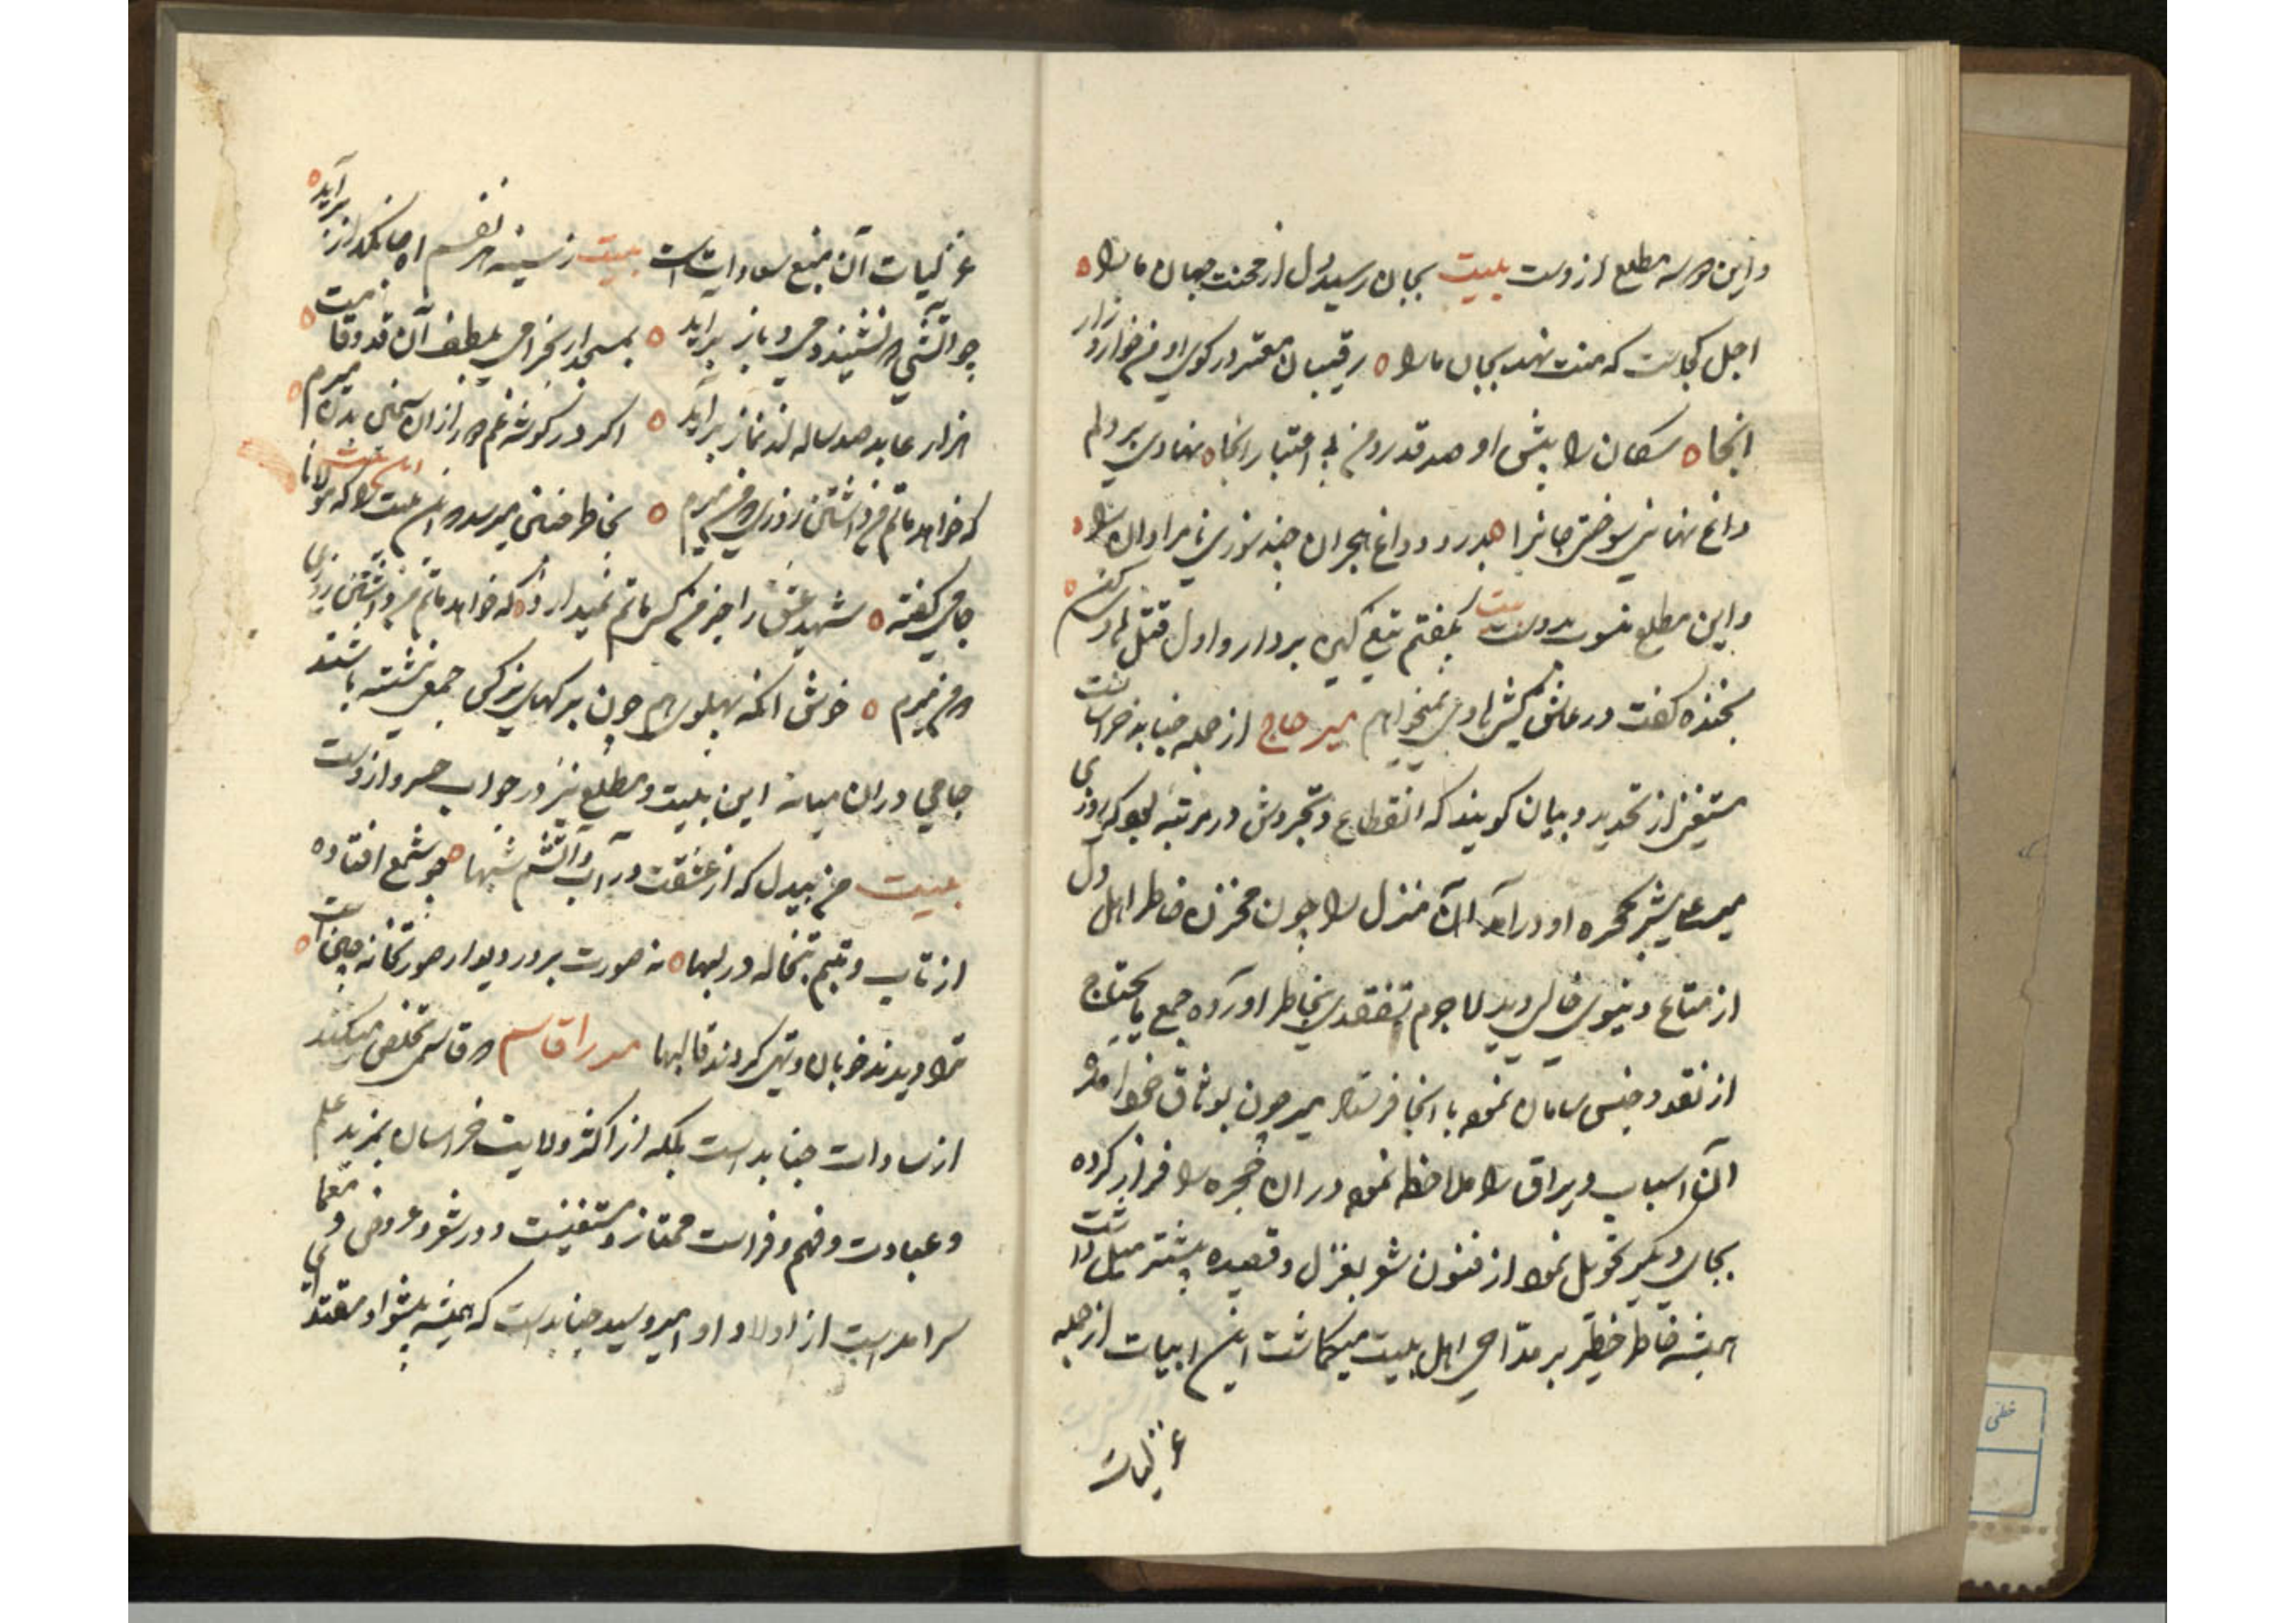 و این هر سه مطلع از وست بیت بجان رسید دل از محنت جهان ما را
اجل کجاست که منت نهد بجان ما را رقیبان معتبر در کوی او من خوار و زار
انجا سکان را پیش او صد قدر و من بی اعتبار انجا نهادی بر دلم
داغ نهانی سوختی جانرا درد و داغ هجران چند سوزی نامرادان را
و این مطلع منسوب بدوست بیت بگفتم تیغ کین بردار و اول قتل
بخنده کفت در عاشق کشی نمیخواهم میر حاج از جمله جنابذ خراسانست
مستغنی از تحدید و بیان کویند که انقطاع و تجردش در مرتبه بود که روزی
میر علیشیر بحجره او درآمد آن منزل را چون مخزن خاطر اهل دل
از متاع دنیوی خالی دید لا جرم تفقدی بخاطر آورده جمیع مایحتاج
از نقود و جنس سامان نموده با انجا فرستاد میر چون بوثاق خود آمد
آن اسباب و یراق را ملاحظه نموده در ان حجره را فراز کرده
بجای دیگر تحویل نمود از فنون شعر بغزل و قصیده بیشتر میل داشت
همیشه خاطر خطیر بر مداحی اهل بیت میکماشت این ابیات از جمله
غزلیات
غزلیات آن منبع سعادات است بیت ز سینه هر نفسم آه جانکداز برآید
چو آتشی که نشیند دمی و باز برآید بمسجد ار بخرامی بلطف آن قد و قامت
هزار عابد صد ساله از نماز برآید اکر در کوشه غم از ان سختی بدن میرم
که خواهد ماتم من داشتن روزی که من میرم بخاطر خستی میرسد که این بیت را که مولانا
جامی کفته شهید عشق را جز من کسی ماتم نمیدارد که خواهد ماتم من داشتن روزی
که من میرم خوش انکه پهلوی هم چون برکهای نرکس جمعی نشسته باشند
جامی در ان میانه این بیت و مطلع نیز در جواب خسرو ازوست
بیت من بیدل که از عشقت در آب و آتشم شبها چو شمع افتاده
از تاب و تبم تبخاله در لبها نه صورت بر در و دیوار صورتخانه چینست
ترا دیدند خوبان و تهی کردند قالبها میرزا قاسم که قاسمی تخلص میکند
از سادات جنابد است بلکه از اکثر ولایت خراسان بمزید علم
و عبادت و فهم و فراست ممتاز و مستغنیست و در شعر و عروض و معما
سرامد است از اولاد امیر سید جنابدیست که همیشه پیشوا و مقتدای
خطی